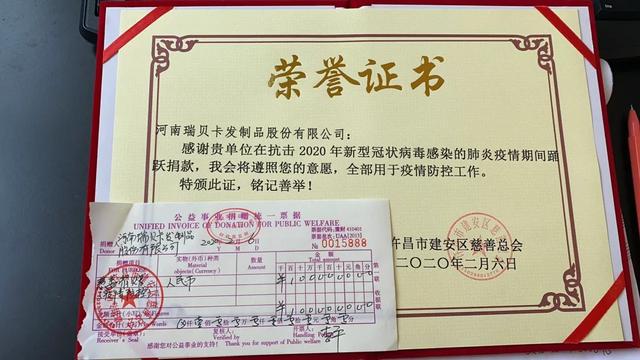 荣誉证书
河南瑞贝卡发制品股份有限公司：
感谢贵单位在抗击2020年新型冠状病毒感染的肺炎疫情期间踊
跃捐款，我会将遵照您的意愿，全部用于疫情防控工作。
特颁此证，铭记善举！
许昌市建安区慈善总会
二〇二〇年二月六日
公益事业捐赠统一票据
UNIFIED INVOICE OF DONATION FOR PUBLIC WELFARE
捐赠人 河南瑞贝卡发制品
Donor 股份有限公司
№ 0015888
捐赠项目 实物(外币)种类 数量 金额
Material
objects(Currency) Amount
千百十万千百十元角分
人民币
复核人
Verified by
开票人
Handling Person
Receiver's Seal
感谢您对公益事业的支持！ Thank you for support of Public welfare!